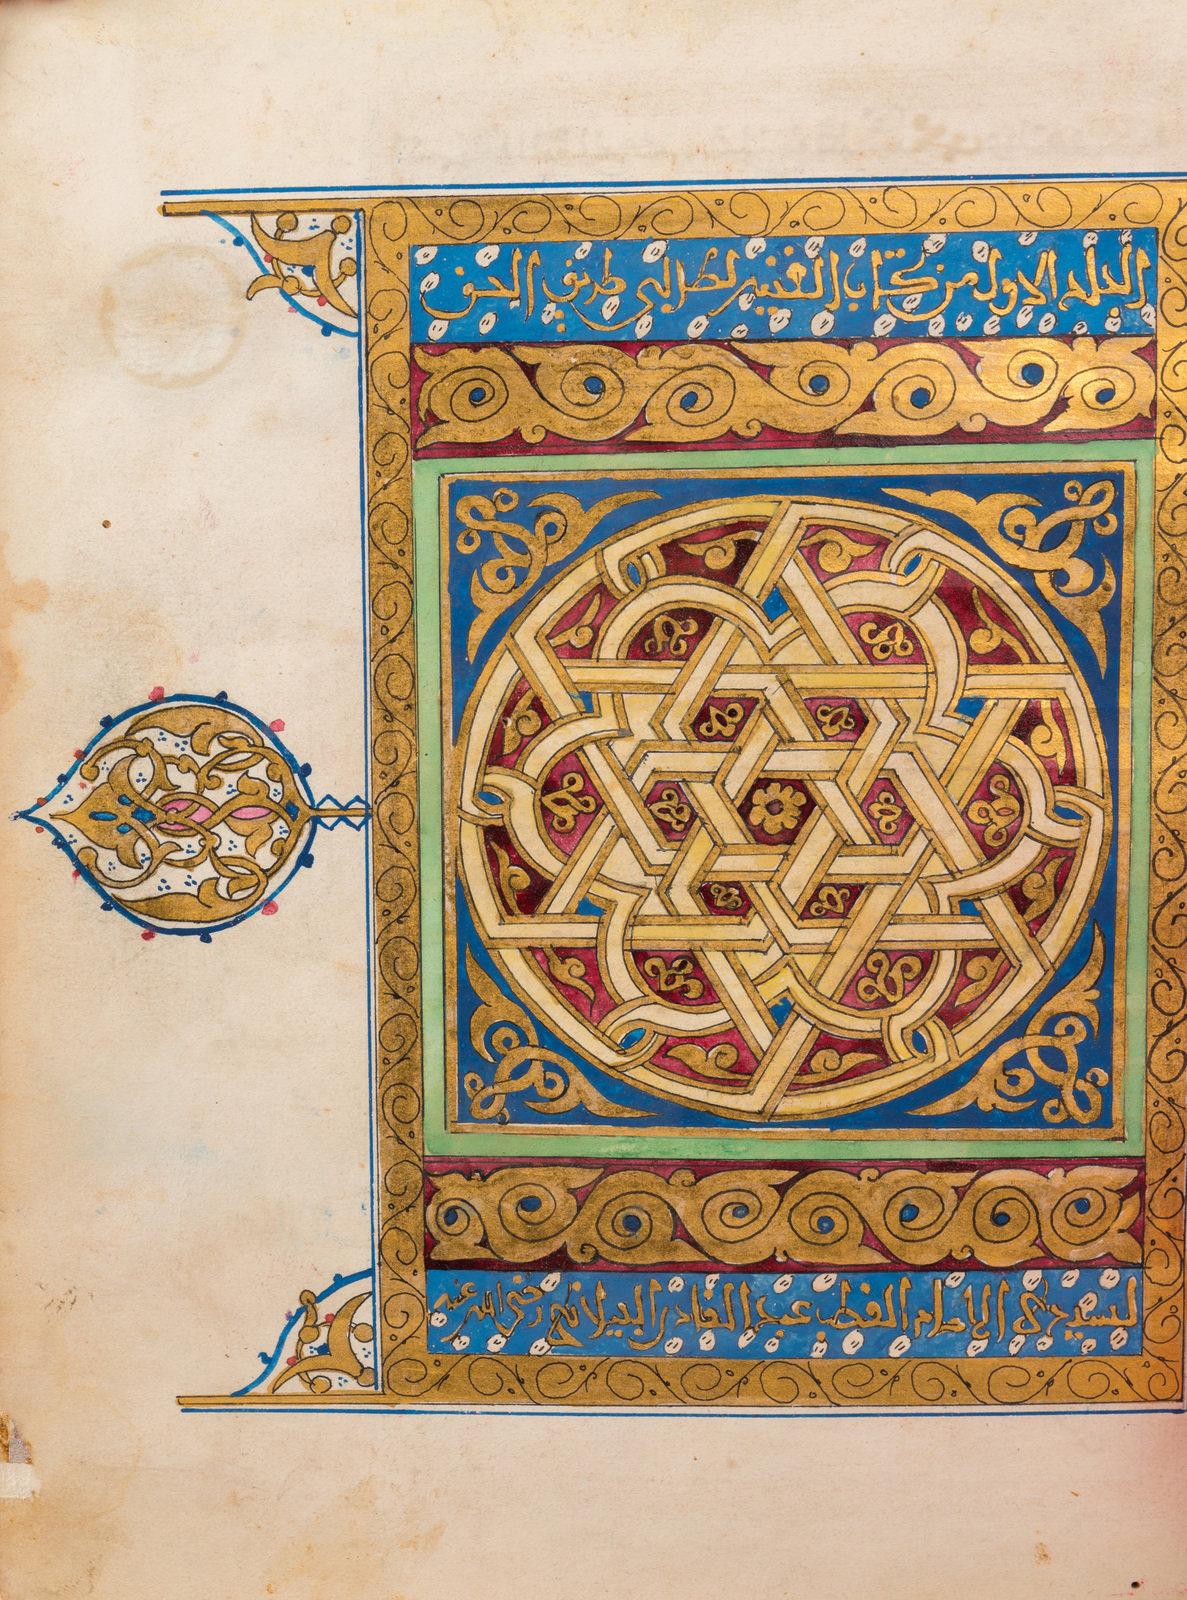 الجلد الاول من كتاب الغنية لطالبي طريق الحق
لسيدي الإمام القطب عبد القادر الجيلاني رضي الله عنه